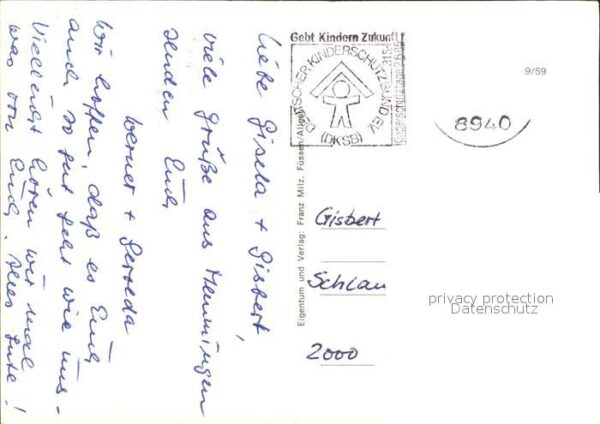 Liebe Gisela + Gisbert,
viele Grüße aus Memmingen
senden Euch
Werner + Gerda
Wir hoffen, daß es Euch
auch so gut geht wie uns -
Vielleicht hören wir mal
was von Euch. Alles Gute!
Gebt Kindern Zukunft
DEUTSCHER KINDERSCHUTZBUND EV.
(DKSB)
8940
9/59
Eigentum und Verlag: Franz Milz, Füssen/
Gisbert
Schlau
2000
privacy protection
Datenschutz